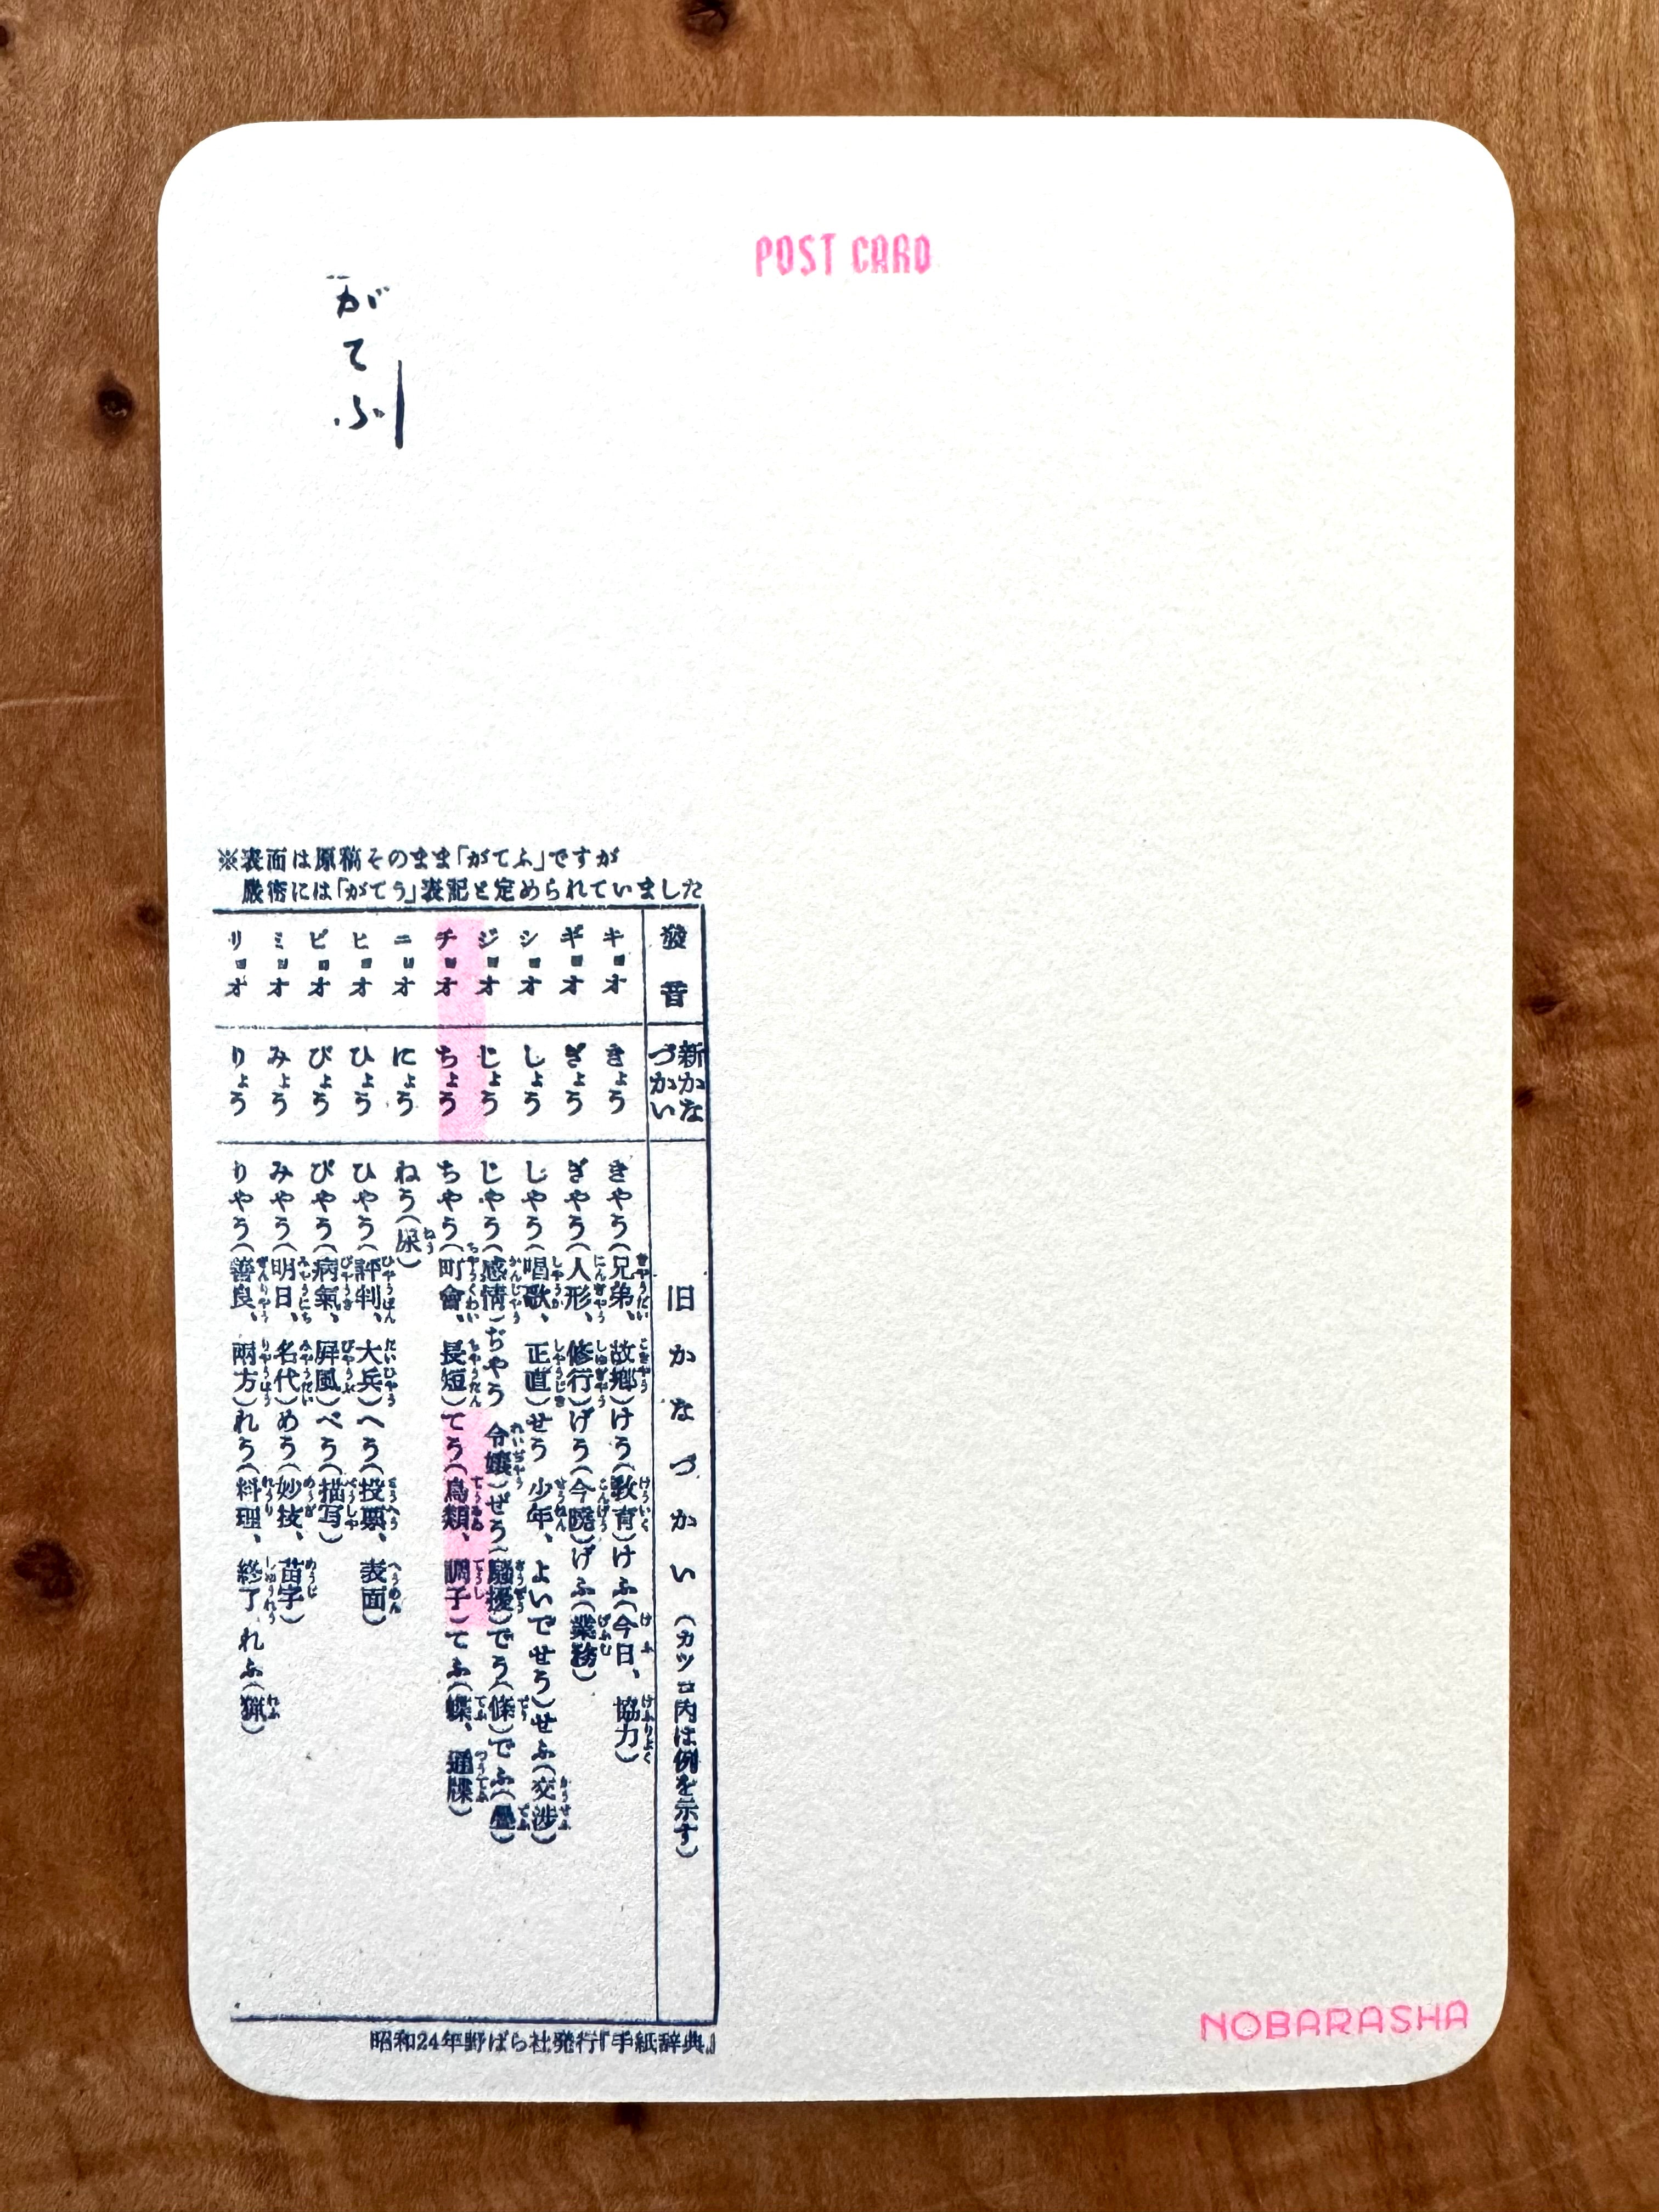 POST CARD
がてふ
※表面は原稿そのまま「がてふ」ですが
厳密には「がてう」表記と定められていました
發音
新かなづかい
旧かなづかい(カッコ内は例を示す)
キョオ きょう きやう(兄弟、故郷)けう(教育)けふ(今日、協力)
ギョオ ぎょう ぎやう(人形、修行)げう(今曉)げふ(業務)
ショオ しょう しやう(唱歌、正直)せう 少年、よいでせう)せふ(交渉)
ジョオ じょう じやう(感情)ぢやう 令嬢)ぜう(騒擾)でう(條)でふ(疊)
チョオ ちょう ちやう(町會、長短)てう(鳥類、調子)てふ(蝶、通牒)
ニョオ にょう ねう(尿)
ヒョオ ひょう ひやう(評判、大兵)へう(投票、表面)
ピョオ ぴょう びやう(病氣、屏風)べう(描写)
ミョオ みょう みやう(明日、名代)めう(妙技、苗字)
リョオ りょう りやう(善良、兩方)れう(料理、終了 れふ(猟)
昭和24年野ばら社発行『手紙辞典』
NOBARASHA